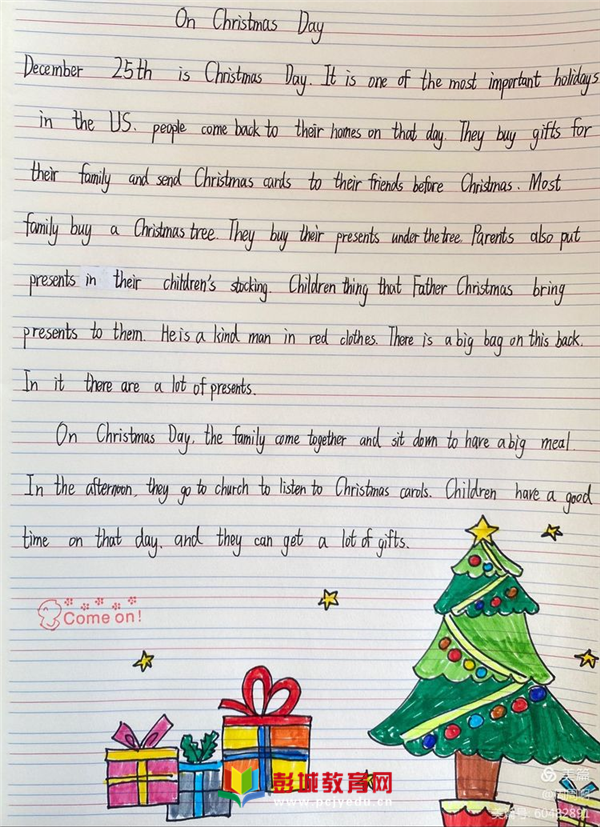 On Christmas Day
December 25th is Christmas Day. It is one of the most important holidays
in the US. people come back to their homes on that day. They buy gifts for
their family and send Christmas cards to their friends before Christmas. Most
family buy a Christmas tree. They buy their presents under the tree. Parents also put
presents in their children's stocking. Children thing that Father Christmas bring
presents to them. He is a kind man in red clothes. There is a big bag on this back.
In it there are a lot of presents.
On Christmas Day, the family come together and sit down to have a big meal.
In the afternoon, they go to church to listen to Christmas carols. Children have a good
time on that day, and they can get a lot of gifts.
Come on!
彭城教育网
www.pcjyedu.cn
美篇
美篇号: 60482891